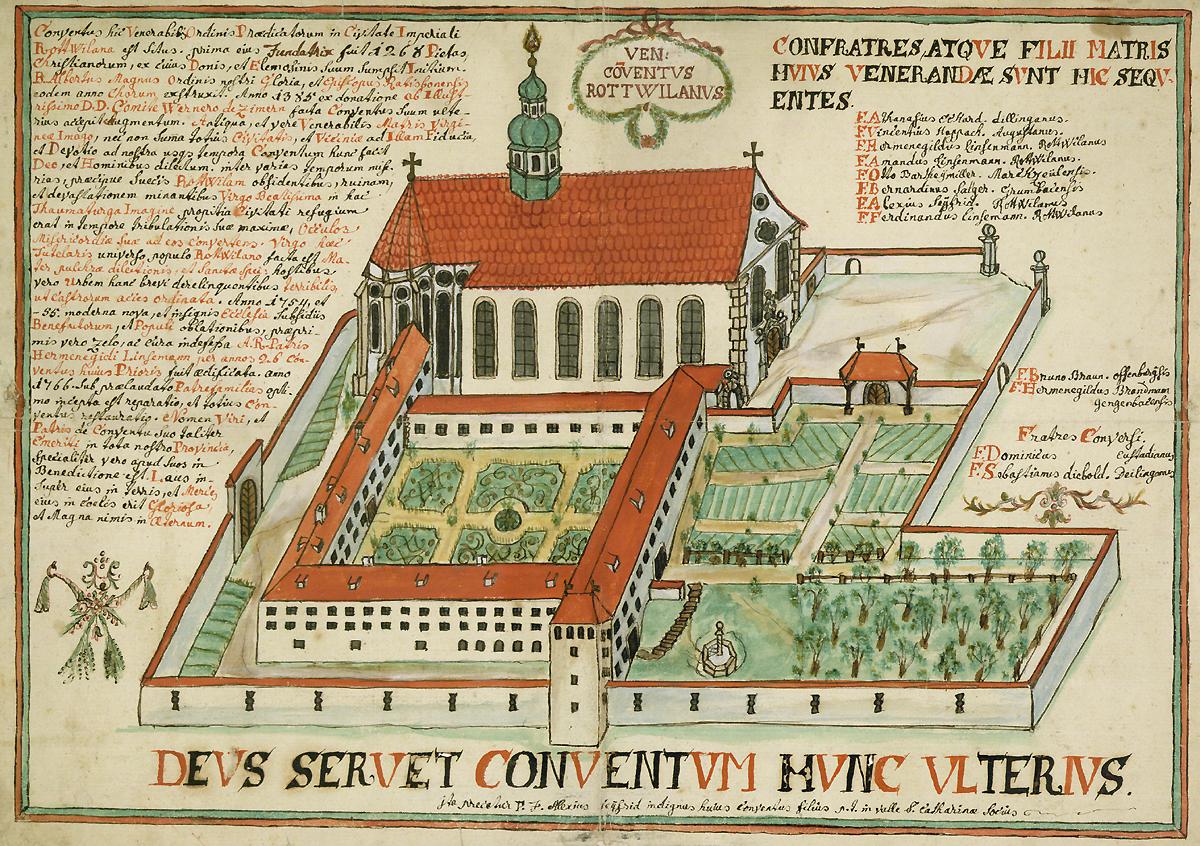 Conventus hic Venerabilis Ordinis Prædicatorum in Civitate Imperiali
RottWilana est situs. prima eius Fundatrix fuit 1268 Pietas,
Christianorum, ex cuius Donis, et Elemosinis suum sumpsit Initium.
B. Albertus Magnus Ordinis nostri Gloria, et Episcopus Ratisbonensis
eodem anno Chorum exstruxit. Anno 1355 ex donatione ab Illust-
rissimo D.D. Comite Wernero de Zimern facta Conventus suum ulte-
rius accepit augmentum. Antiqua, et vere Venerabilis Matris Virgi-
neæ Imago, nec non suma totius Civitatis, et Viciniæ ad Illam Fiducia,
et Devotio ad nostra usqs tempora Conventum hunc facit
Deo, et Hominibus dilectum. inter varias temporum mise-
rias, præcipue Suecis RottWilam obsidentibus, ruinam,
et devastationem minantibus Virgo Beatissima in hac
Thaumaturga Imagine propitia Civitati refugium
erat in tempore tribulationis suæ maximæ, Occulos
Misericordiæ suæ ad eos convertens. Virgo hæc
Tutelaris universo populo RottWilano facta est Ma-
ter pulchræ dilectionis, et Sanctæ spei, hostibus
vero Urbem hanc brevi derelinquentibus terribilis,
ut Castrorum acies ordinata. Anno 1754, et
-55. moderna nova, et insignis Ecclesia Subsidiis
Benefactorum, et Populi oblationibus, præpri-
mis vero zelo, ac cura indefessa A.R. Patris
Hermenegidi Linsemann per annos 26 Con-
ventus huius Prioris fuit ædificata. anno
1766. Sub prælaudato Patrefamilias opti-
mo incepta est reparatio, et totius Con-
ventus restauratio. Nomen Viri, et
Patris de Conventu suo taliter
Emeriti in tota nostra Provincia,
specialiter vero apud Suos in
Benedictione est. Laus in-
super eius in terris, et Merces
eius in coelis erit Gloriosa,
et Magna nimis in æternum.
VEN:
CŌVENTVS
ROTTWILANVS
CONFRATRES, ATQVE FILII MATRIS
HVIVS VENERANDÆ SVNT HIC SEQV-
ENTES.
F. Athanasius Eckard. dillinganus.
F. Vincentius Hoppach. Augustanus.
F. Hermenegildus Linsemann. RottWilanus
F. Amandus Linsemann. RottWilanus.
F. Otto Bartheymiller.
F. Bernardinus Salzer.
F. Alexius Seÿfrid. RottWilanus
F. Ferdinandus Linsemann. RottWilanus
F. Bruno Braun. offenburgensis
F. Hermenegildus Brandmam
gengenbacensis
Fratres Conversi.
F. Dominicus
F. Sebastianus diebold. Deilinganus
DEVS SERVET CONVENTVM HVNC VLTERIVS.
Ita precatur P. F. Alexius Seÿfrid indignus huius conventus filius p.t. in valle S. Catharinæ Socius